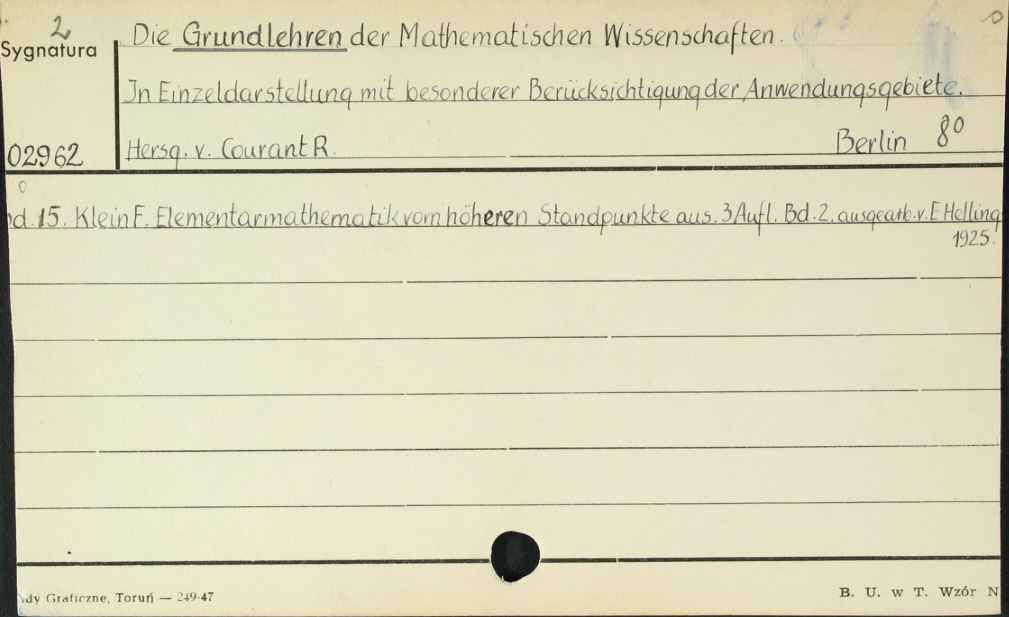 2
Sygnatura
Die Grundlehren der Mathematischen Wissenschaften.
In Einzeldarstellung mit besonderer Berücksichtigung der Anwendungsgebiete.
02962
Hersg. v. Courant R.
Berlin 8⁰
Bd. 15. Klein F. Elementarmathematik vom höheren Standpunkte aus. 3 Aufl. Bd. 2. ausgearb. v. E Helling
1925.
dy Graficzne, Toruń — 249-47
B. U. w T. Wzór N